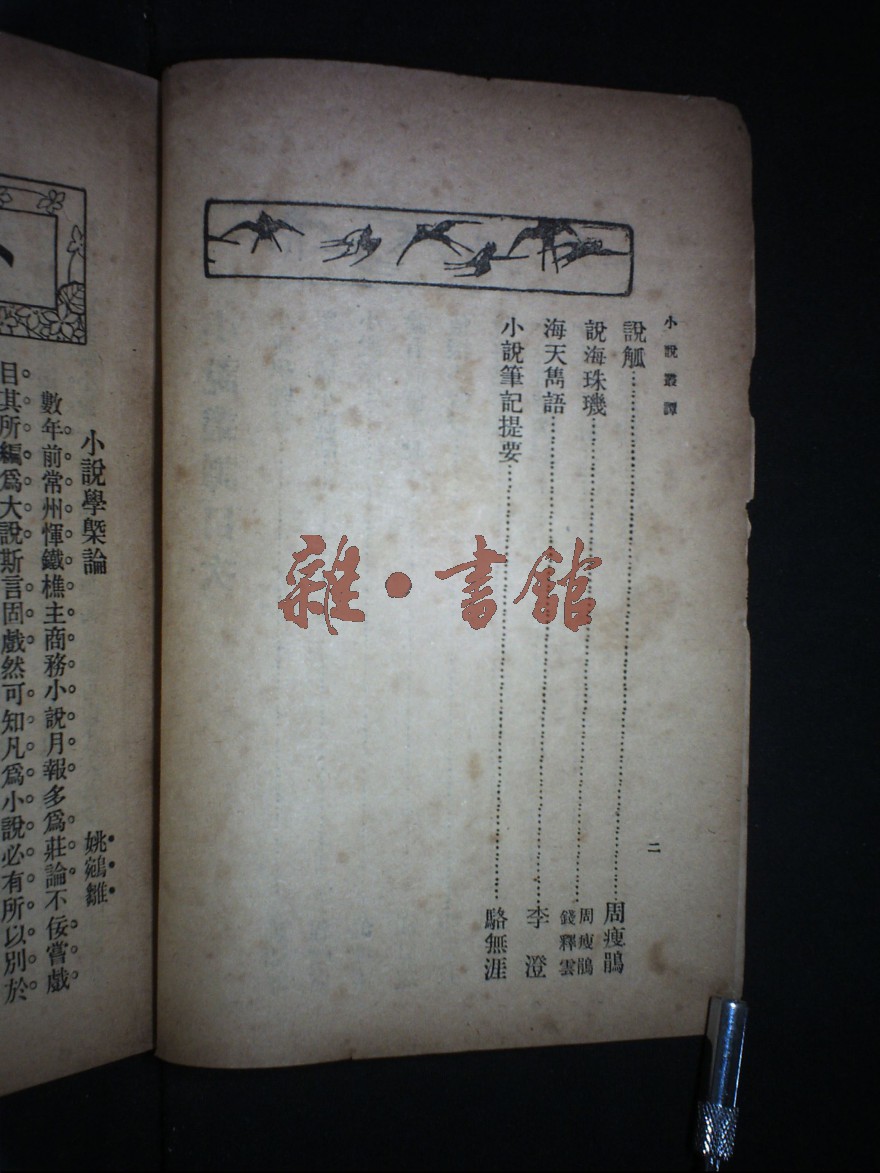 小說叢譚
二
說觚……周瘦鵑
說海珠璣……周瘦鵑 錢釋雲
海天雋語……李澄
小說筆記提要……駱無涯
雜·書館
小說學槩論
姚鵷雛
數年前常州惲鐵樵主商務小說月報多爲莊論不佞嘗戲
目其所編爲大說斯言固戲然可知凡爲小說必有所以別於